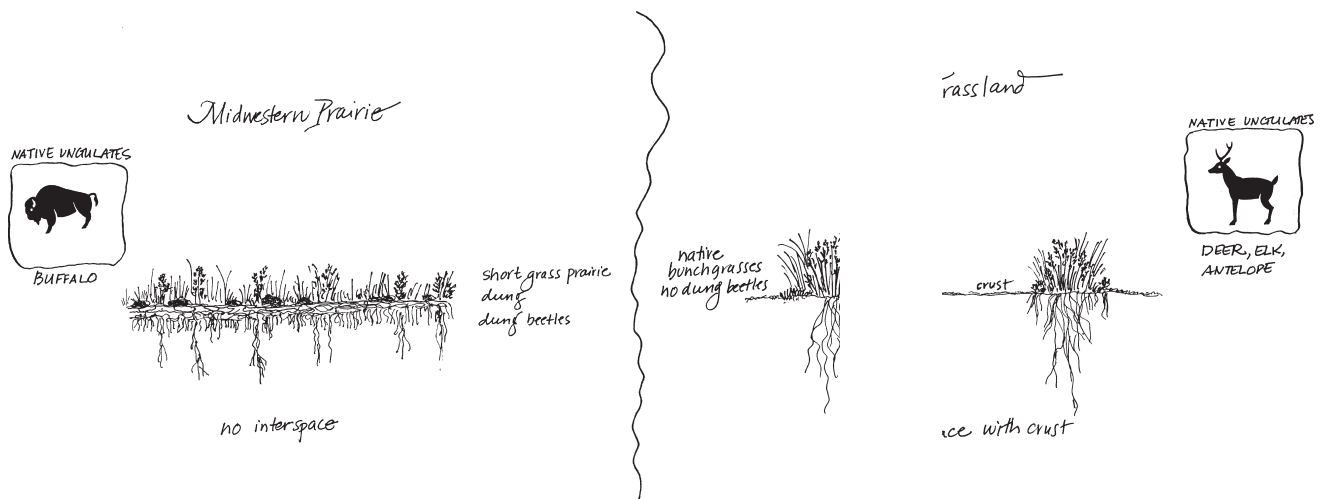 Midwestern Prairie
NATIVE UNGULATES
BUFFALO
short grass prairie
dung
dung beetles
no interspace
rassland
NATIVE UNGULATES
DEER, ELK,
ANTELOPE
native
bunchgrasses
no dung beetles
crust
ce with crust